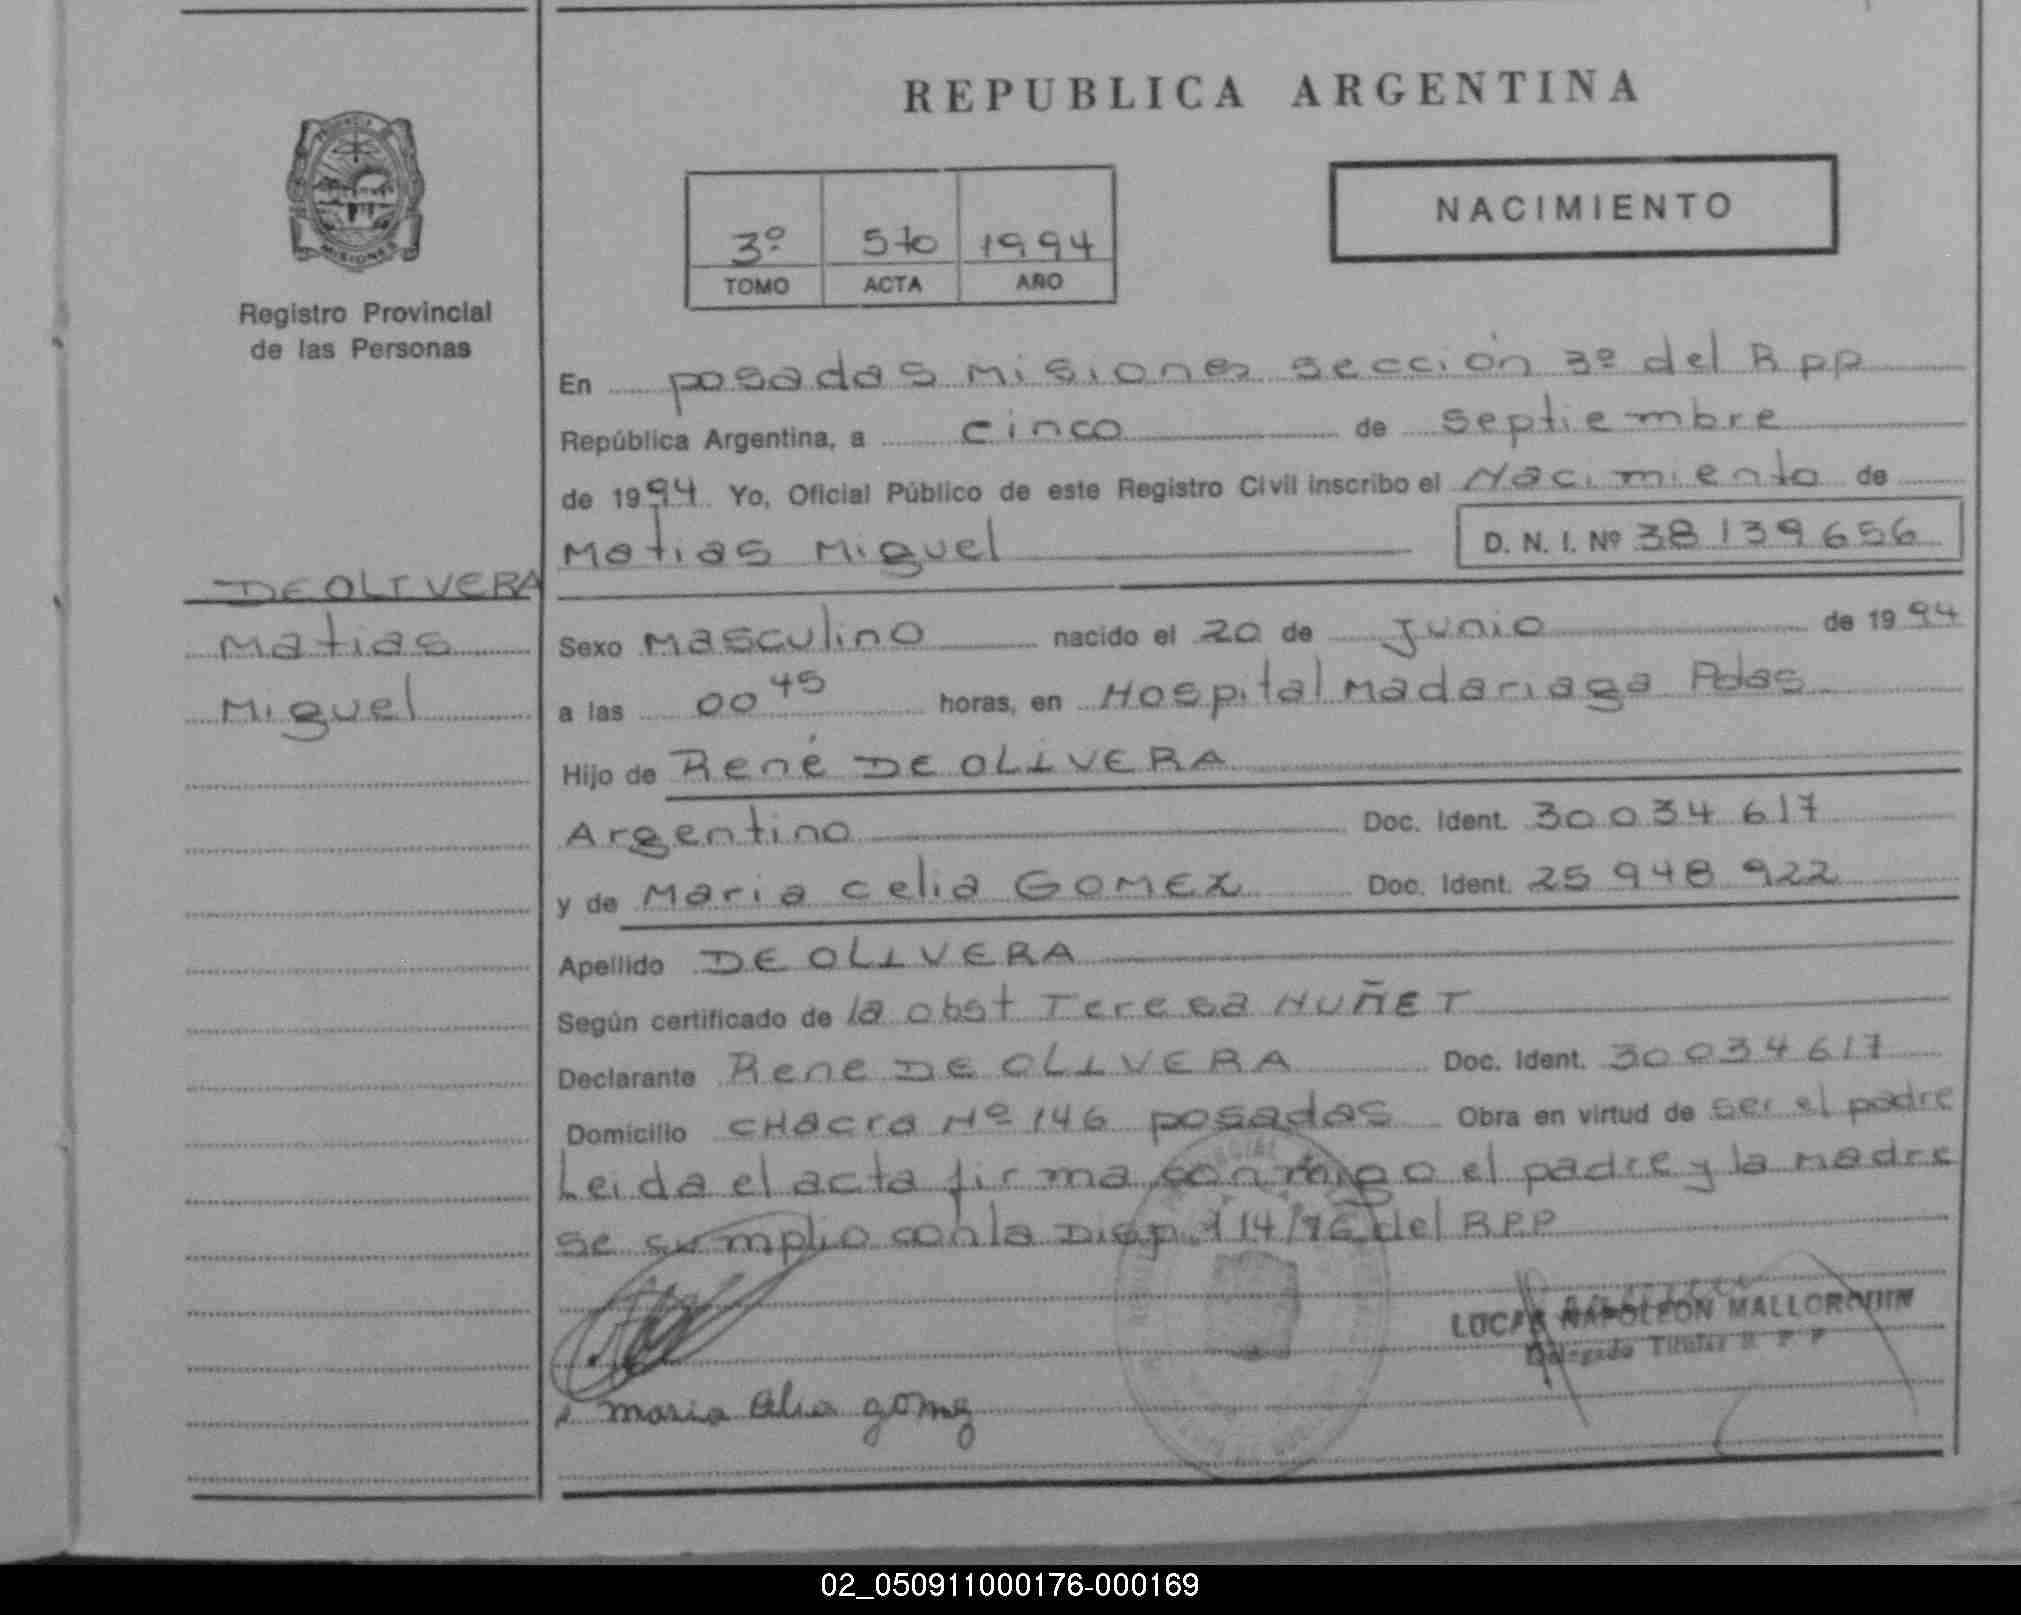 REPUBLICA ARGENTINA
PROVINCIA DE
MISIONES
Registro Provincial
de las Personas
3º 510 1994
TOMO ACTA AÑO
NACIMIENTO
En posadas Misiones sección 3º del Rpp
República Argentina, a cinco de septiembre
de 1994 Yo, Oficial Público de este Registro Civil inscribo el Nacimiento de
Matias Miguel D. N. I. Nº 38139656
DE OLIVERA
Matias
Miguel
Sexo Masculino nacido el 20 de Junio de 1994
a las 00 45 horas, en Hospital Madariaga Pdas
Hijo de René DE OLIVERA
Argentino Doc. Ident. 30 034 617
y de Maria Celia GOMEZ Doc. Ident. 25 948 922
Apellido DE OLIVERA
Según certificado de la obst Teresa NUÑET
Declarante Rene DE OLIVERA Doc. Ident. 30 034 617
Domicilio CHacra Nº 146 posadas Obra en virtud de ser el padre
Leida el acta firma conmigo el padre y la madre
se cumplio con la Disp. 114/76 del R.P.P
LUCAS NAPOLEON MALLORQUIN
Delegado Titular R. P. P.
Maria Celia gomez
02_050911000176-000169